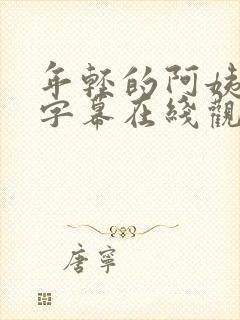 年轻的阿姨
字幕在綫觀
唐寧